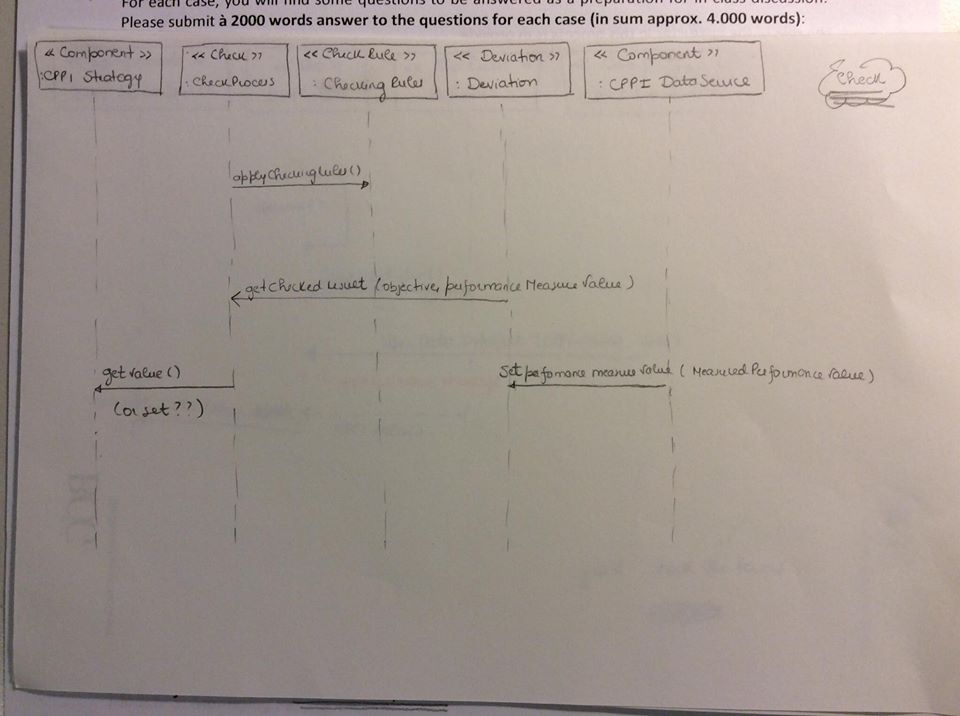 For each case, you will find some questions to be answered as a preparation for in class discussion.
Please submit à 2000 words answer to the questions for each case (in sum approx. 4.000 words):
<< Component >>
:CPPI Strategy
<< Check >>
: CheckProcess
<< Check Rule >>
: Checking Rules
<< Deviation >>
: Deviation
<< Component >>
: CPPI DataService
Check
applyCheckingRules()
getChecked result (objective, performance Measure Value)
getvalue()
(or set??)
Set performance measure value (Measured Performance Value)